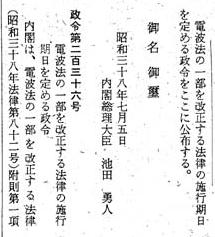 電波法の一部を改正する法律の施行期日
を定める政令をここに公布する。
御名御璽
昭和三十八年七月五日
内閣総理大臣 池田 勇人
政令第二百三十六号
電波法の一部を改正する法律の施行
期日を定める政令
内閣は、電波法の一部を改正する法律
(昭和三十八年法律第八十二号)附則第一項